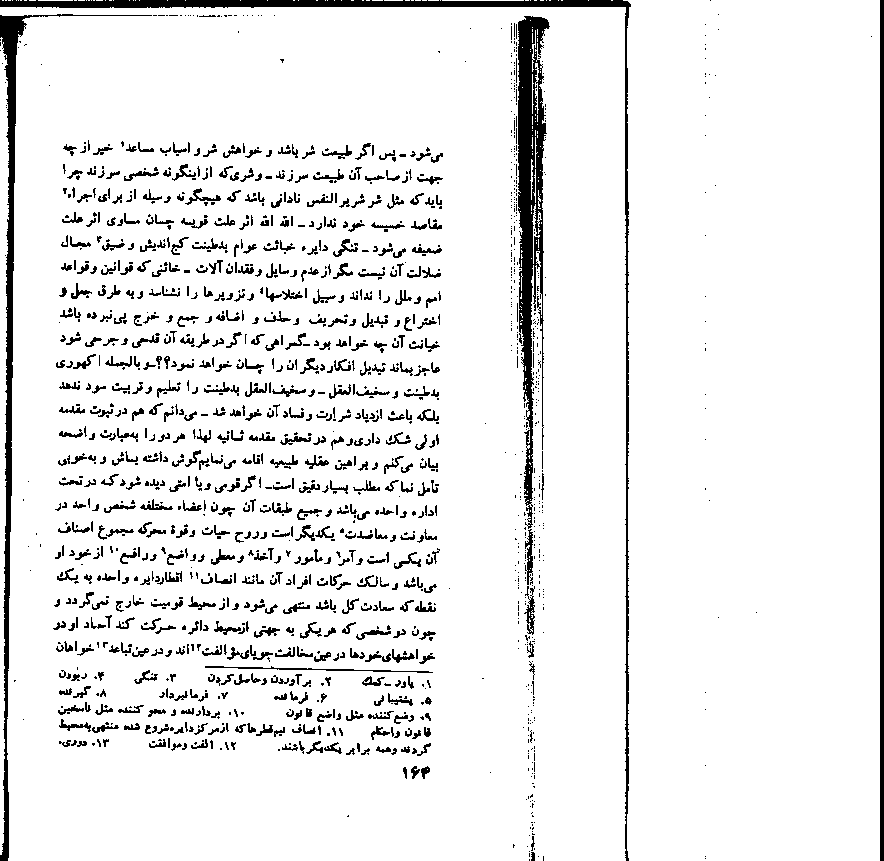 می‌شود ـ پس اگر طبیعت شر باشد و خواهش شر و اسباب مساعد۱ خیر از چه
جهت از صاحب آن طبیعت سر زند ـ و شری که از اینگونه شخصی سرزند چرا
باید که مثل شر شریرالنفس نادانی باشد که هیچگونه وسیله از برای اجراء۲
مقاصد خسیسه خود ندارد ـ الله الله اثر علت قویه چسان مساوی اثر علت
ضعیفه می‌شود ـ تنگی دایره خباثت عوام بدطینت کج‌اندیش و ضیق۳ مجال
ضلالت آن نیست مگر از عدم وسایل و فقدان آلات ـ خائنی که قوانین و قواعد
امم و ملل را نداند و سبیل اختلاسها۴ و تزویرها را نشناسد و به طرق جعل و
اختراع و تبدیل و تحریف و حذف و اضافه و جمع و خرج پی‌نبرده باشد
خیانت آن چه خواهد بود ـ گمراهی که اگر در طریقه آن قدحی و جرحی شود
عاجز بماند تبدیل افکار دیگران را چسان خواهد نمود؟؟ ـ و بالجمله اکهوری
بدطینت و سخیف‌العقل ـ و سخیف‌العقل بدطینت را تعلیم و تربیت سود ندهد
بلکه باعث ازدیاد شرارت و فساد آن خواهد شد ـ می‌دانم که هم در ثبوت مقدمه
اولی شک داری و هم در تحقیق مقدمه ثانیه لهذا هر دو را به‌عبارت واضحه
بیان می‌کنم و براهین عقلیه طبیعیه اقامه می‌نمایم گوش داشته باش و به‌خوبی
تأمل نما که مطلب بسیار دقیق است ـ اگر قومی و یا امتی دیده شود که در تحت
اداره واحده می‌باشد و جمیع طبقات آن چون اعضاء مختلفه شخص واحد در
معاونت و معاضدت۵ یکدیگر است و روح حیات و قوهٔ محرکه مجموع اصناف
آن یکی است و آمر۶ و مأمور۷ و آخذ۸ و معطی و واضع۹ و رافع۱۰ از خود او
می‌باشد و سالک حرکات افراد آن مانند انصاف۱۱ اقطار دایره واحده به یک
نقطه که سعادت کل باشد منتهی می‌شود و از محیط قومیت خارج نمی‌گردد و
چون دو شخصی که هر یکی به جهتی از محیط دائره حرکت کند آحاد او در
خواهشهای خودها در عین مخالفت جویای مؤالفت۱۲ اند و در عین تباعد۱۳ خواهان
۱. یاور ـ کمک ۲. برآوردن و حاصل کردن ۳. تنگی ۴. ربودن
۵. پشتیبانی ۶. فرمانده ۷. فرمانبردار ۸. گیرنده
۹. وضع‌کننده مثل واضع قانون ۱۰. بردارنده و محو کننده مثل ناسخین
قانون و احکام ۱۱. انصاف نیم‌قطرها که از مرکز دایره شروع شده منتهی به‌محیط
گردند و همه برابر یکدیگر باشند. ۱۲. الفت و موافقت ۱۳. دوری.
۱۶۴